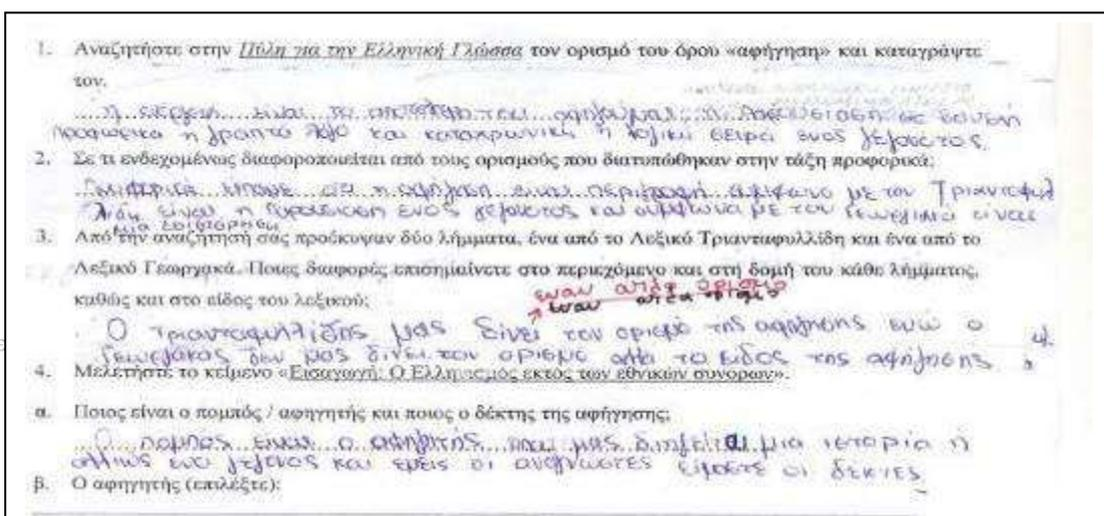 1. Αναζητήστε στην Πύλη για την Ελληνική Γλώσσα τον ορισμό του όρου «αφήγηση» και καταγράψτε
τον.
είναι το αποτέλεσμα του αφηγούμαι, η παρουσίαση σε
προφορικό ή γραπτό λόγο και ή λογική σειρά ενός γεγονότος.
2. Σε τι ενδεχομένως διαφοροποιείται από τους ορισμούς που διατυπώθηκαν στην τάξη προφορικά;
είπαμε ότι η αφήγηση είναι περιγραφή με τον Τριανταφυλ
λίδη είναι η παρουσίαση ενός γεγονότος και σύμφωνα με τον είναι
μια εξιστόρηση
3. Από την αναζήτησή σας προέκυψαν δύο λήμματα, ένα από το Λεξικό Τριανταφυλλίδη και ένα από το
Λεξικό Γεωργακά. Ποιες διαφορές επισημαίνετε στο περιεχόμενο και στη δομή του κάθε λήμματος,
καθώς και στο είδος του λεξικού;
εναν απλο όρισμο
εναν απλο ορισμο
Ο Τριανταφυλλίδης μας δίνει τον ορισμό της αφήγησης ενώ ο
δεν μας δίνει τον ορισμο αλλα το είδος της αφήγησης
4. Μελετήστε το κείμενο «Εισαγωγή: Ο Ελληνισμός εκτός των εθνικών συνόρων».
α. Ποιος είναι ο πομπός / αφηγητής και ποιος ο δέκτης της αφήγησης;
Ο πομπος ειναι ο αφηγητής που μας διηγείται μια ιστορία ή
αλλιώς ενα γεγονος και εμείς οι αναγνωστες είμαστε οι δεκτες
β. Ο αφηγητής (επιλέξτε):